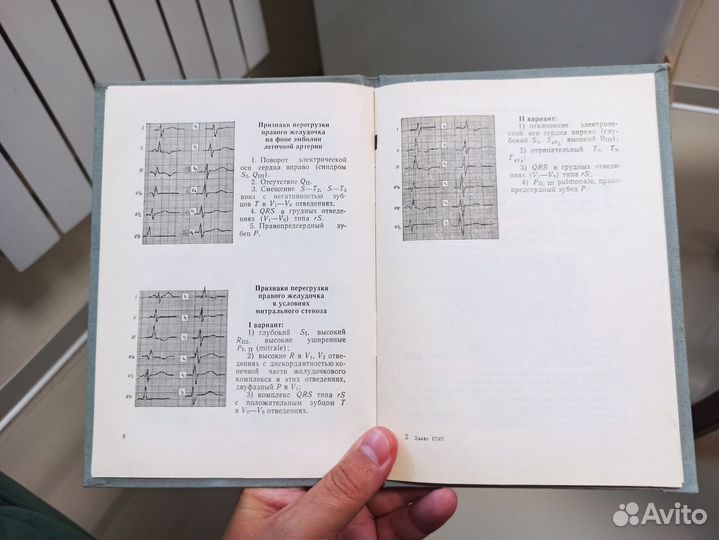 Признаки перегрузки
правого желудочка
на фоне эмболии
легочной артерии
1. Поворот электрической
оси сердца вправо (синдром
S₁, Q_III).
2. Отсутствие Q_II.
3. Смещение S—T₂, S—T₃
вниз с негативностью зуб-
цов T в V₁—V₆ отведениях.
4. QRS в грудных отведе-
ниях (V₁—V₆) типа rS.
5. Правопредсердный зу-
бец P.
Признаки перегрузки
правого желудочка
в условиях
митрального стеноза
I вариант:
1) глубокий S_I, высокий
R_III, высокие уширенные
P_I, II (mitrale);
2) высокие R в V₁, V₂ отве-
дениях с дискордантностью ко-
нечной части желудочкового
комплекса в этих отведениях,
двуфазный P в V₁;
3) комплекс QRS типа rS
с положительным зубцом T
в V₂—V₆ отведениях.
8
II вариант:
1) отклонение электриче-
ской оси сердца вправо (глу-
бокий S₁, S_aVL, высокий R_III);
2) отрицательный T₂, T₃,
T_aVF;
3) QRS в грудных отведе-
ниях (V₁—V₆) типа rS;
4) P_II, III pulmonale, право-
предсердный зубец P
2 Заказ 17567
Avito